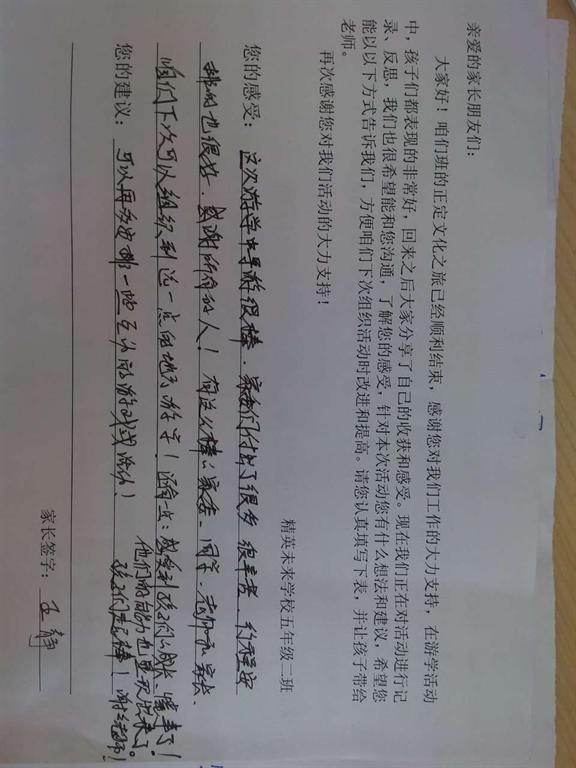 亲爱的家长朋友们：
大家好！咱们班的正定文化之旅已经顺利结束，感谢您对我们工作的大力支持，在游学活动
中，孩子们都表现的非常好，回来之后大家分享了自己的收获和感受。现在我们正在对活动进行记
录、反思，我们也很希望能和您沟通，了解您的感受，针对本次活动您有什么想法和建议，希望您
能以以下方式告诉我们，方便咱们下次组织活动时改进和提高。请您认真填写下表，并让孩子带给
老师。
再次感谢您对我们活动的大力支持！
精英未来学校五年级二班
您的感受：这次游学中导游很棒、家委们付出了很多 很辛苦、行程安
排的也很好、感谢所有的人！有这么棒的家委、同学、老师和家长、
咱们下次可以组织到远一点的地方游学！还有一点：感受到孩子们的成长、懂事了！
他们的能力也显现出来了。
您的建议：可以再多安排一些互动游戏或活动！孩子们真棒！谢谢老师！
家长签字：王静